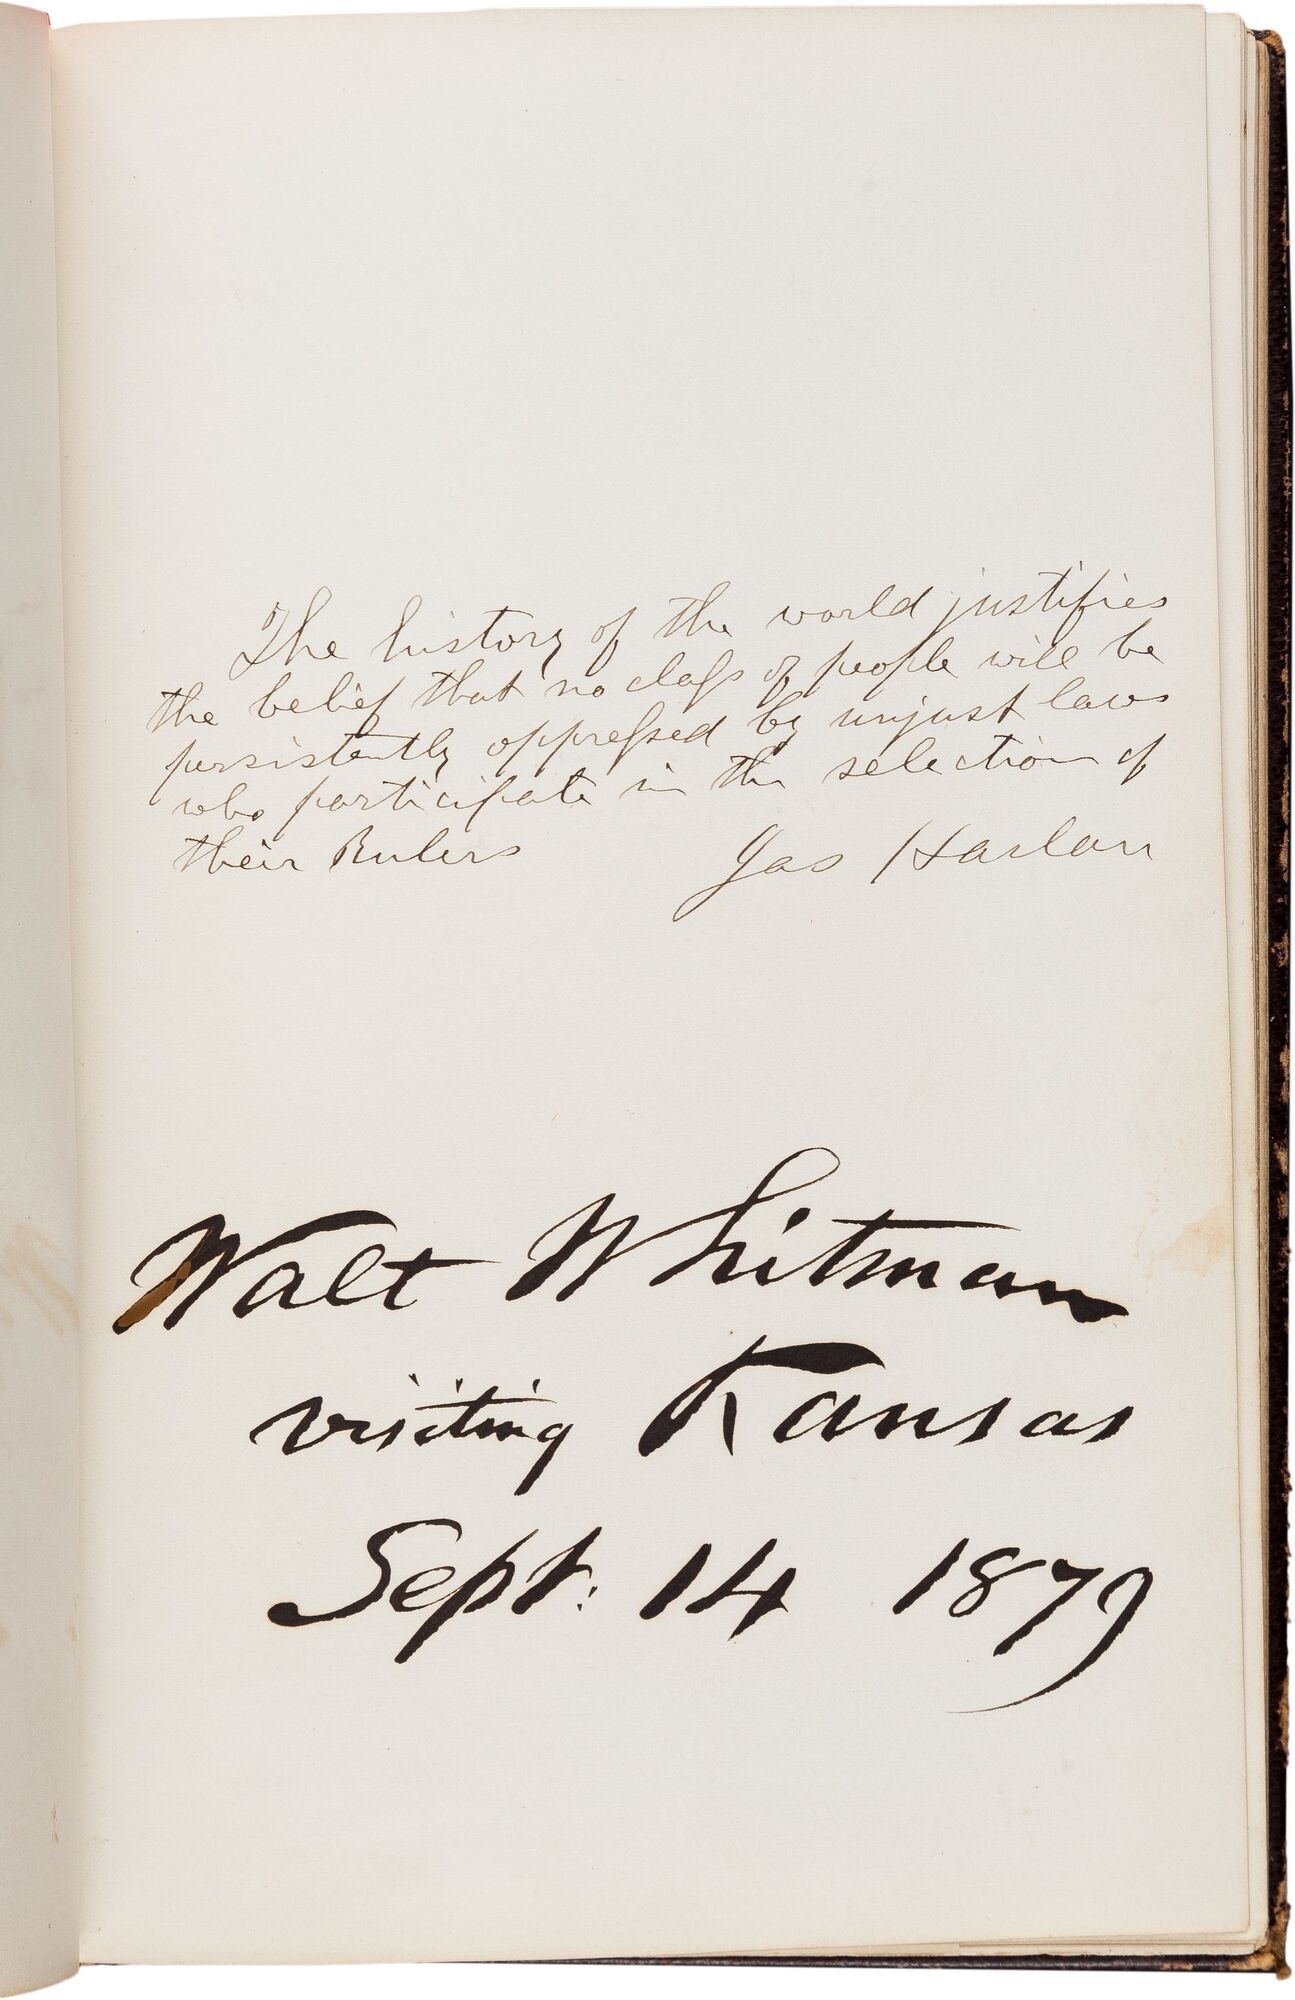 The history of the world justifies
the belief that no class of people will be
persistently oppressed by unjust laws
who participate in the selection of
their Rulers
Jas Harlan
Walt Whitman
visiting Kansas
Sept. 14 1879